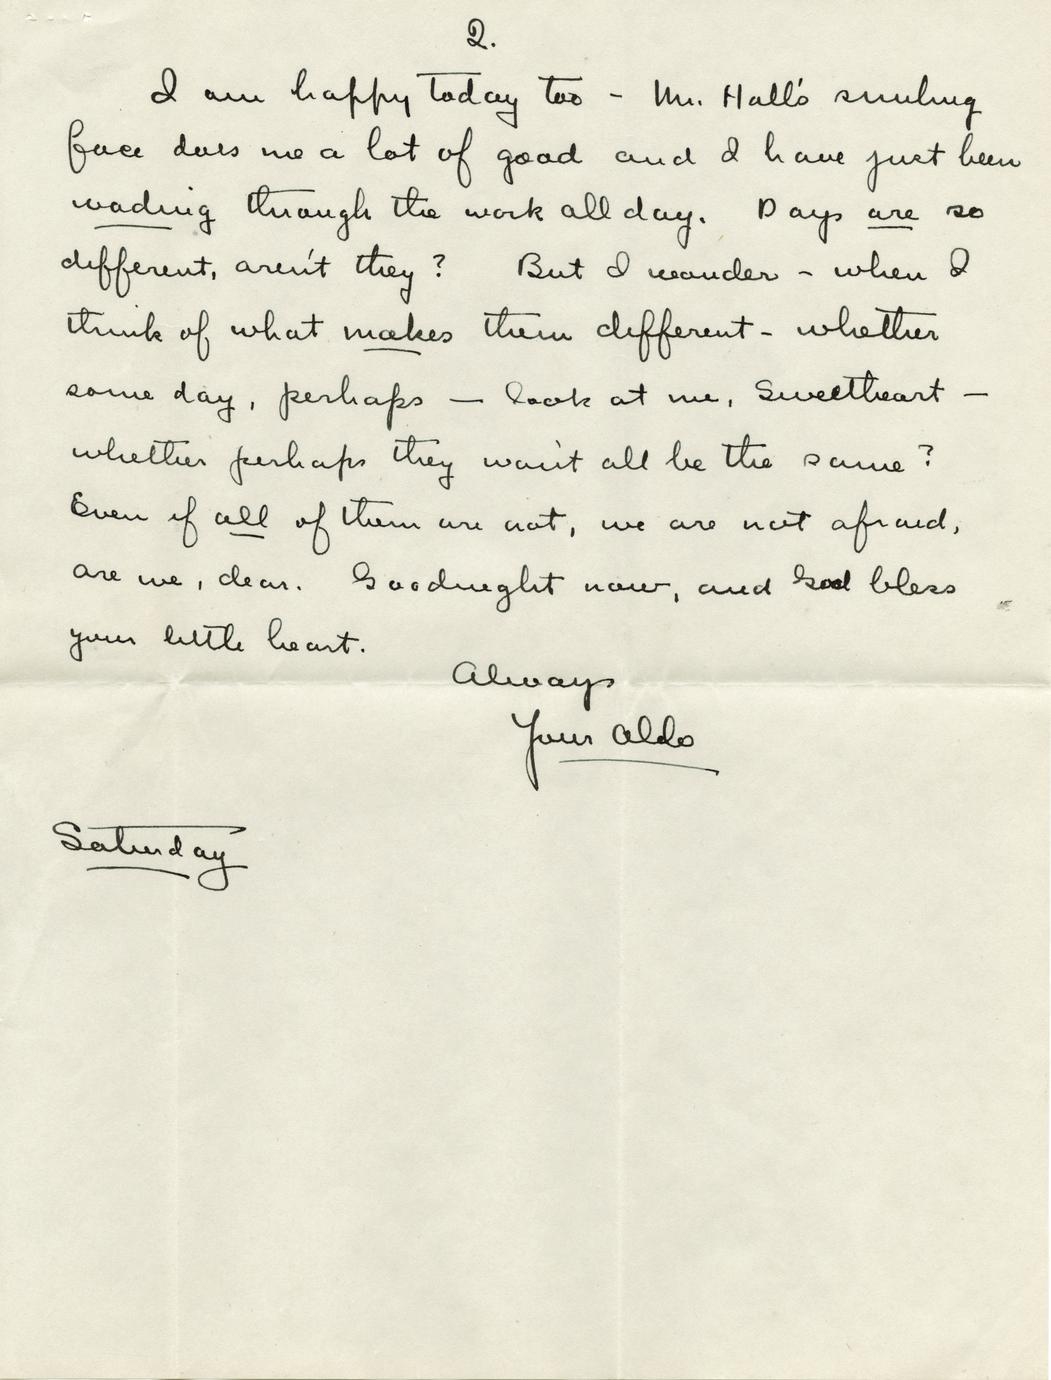 2.
I am happy today too - Mr. Hall's smiling
face does me a lot of good and I have just been
wading through the work all day. Days are so
different, aren't they? But I wonder - when I
think of what makes them different - whether
some day, perhaps — look at me, Sweetheart —
whether perhaps they won't all be the same?
Even if all of them are not, we are not afraid,
are we, dear. Goodnight now, and God bless
your little heart.
Always
Your Aldo
Saturday